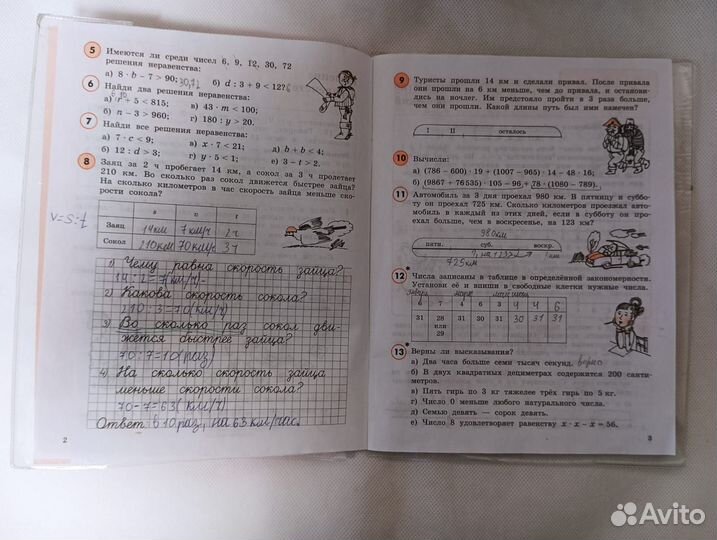 5 Имеются ли среди чисел 6, 9, 12, 30, 72
решения неравенства:
а) 8 · b − 7 > 90; 30,72 б) d : 3 + 9 < 12? 6
6 Найди два решения неравенства:
а) r + 5 < 815; в) 43 · m < 100;
б) n − 3 > 960; г) 180 : y > 20.
7 Найди все решения неравенства:
а) 7 · c < 9; в) x · 7 < 21; д) b + b < 4;
б) 12 : d > 3; г) y · 5 < 1; е) 3 − t > 2.
8 Заяц за 2 ч пробегает 14 км, а сокол за 3 ч пролетает
210 км. Во сколько раз сокол движется быстрее зайца?
На сколько километров в час скорость зайца меньше ско-
рости сокола?
s v t
Заяц 14км 7км/ч 2ч
Сокол 210км 70км/ч 3ч
v=s:t
1) Чему равна скорость зайца?
14:2=7(км/ч)
2) Какова скорость сокола?
210:3=70(км/ч)
3) Во сколько раз сокол дви-
жется быстрее зайца?
70:7=10(раз)
4) На сколько скорость зайца
меньше скорости сокола?
70-7=63(км/ч)
Ответ: в 10 раз, на 63 км/час.
2
9 Туристы прошли 14 км и сделали привал. После привала
они прошли на 6 км меньше, чем до привала, и останови-
лись на ночлег. Им предстояло пройти в 3 раза больше,
чем они прошли. Какой длины путь был ими намечен?
I II осталось
10 Вычисли:
а) (786 − 600) · 19 + (1007 − 965) · 14 − 48 · 16;
б) (9867 + 76535) · 105 − 96 + 78 · (1080 − 789).
11 Автомобиль за 3 дня проехал 980 км. В пятницу и суббо-
ту он проехал 725 км. Сколько километров проезжал авто-
мобиль в каждый из этих дней, если в субботу он про-
ехал больше, чем в воскресенье, на 123 км?
980км
пятн. суб. воскр.
?, на 123 > ? км
725км
12* Числа записаны в таблице в определённой закономерности.
Установи её и впиши в свободные клетки нужные числа.
январь март
6 7 4 6 3 4 4 6
31 28 или 29 31 30 31 30 31 31
13* Верны ли высказывания?
а) Два часа больше семи тысяч секунд. верно
б) В двух квадратных дециметрах содержится 200 санти-
метров.
в) Пять гирь по 3 кг тяжелее трёх гирь по 5 кг.
г) Число 0 меньше любого натурального числа.
д) Семью девять — сорок девять.
е) Число 8 удовлетворяет равенству x · x − x = 56.
3
Avito